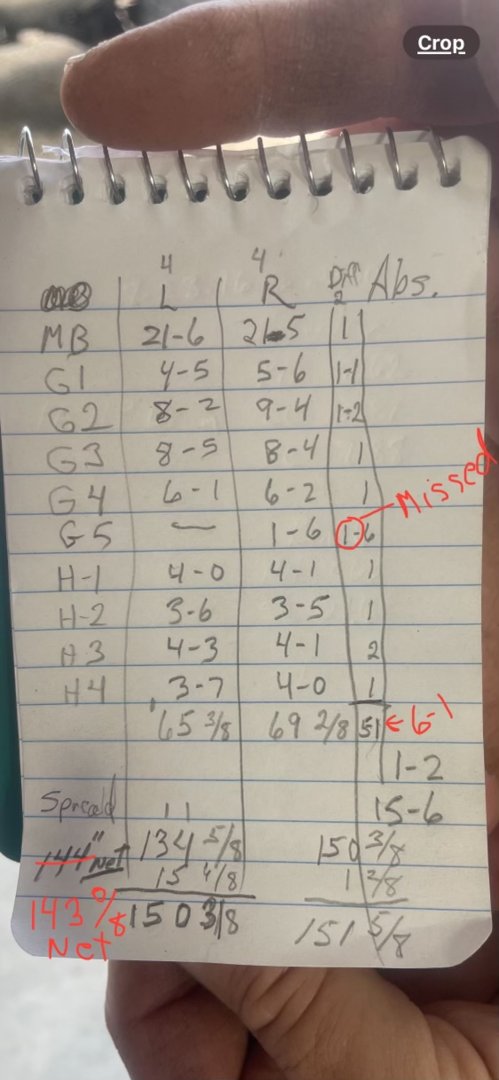 Crop
4 4 Diff
L R 2 Abs.
MB 21-6 21-5 1
G1 4-5 5-6 1-1
G2 8-2 9-4 1-2
G3 8-5 8-4 1
G4 6-1 6-2 1 Missed
G5 — 1-6 1-6
H-1 4-0 4-1 1
H-2 3-6 3-5 1
H3 4-3 4-1 2
H4 3-7 4-0 1
65 3/8 69 2/8 51 ← 6-1
1-2
Spread 11 15-6
144" Net 134 5/8 150 3/8
15 4/8 1 2/8
143 0/8 150 3/8 151 5/8
Net